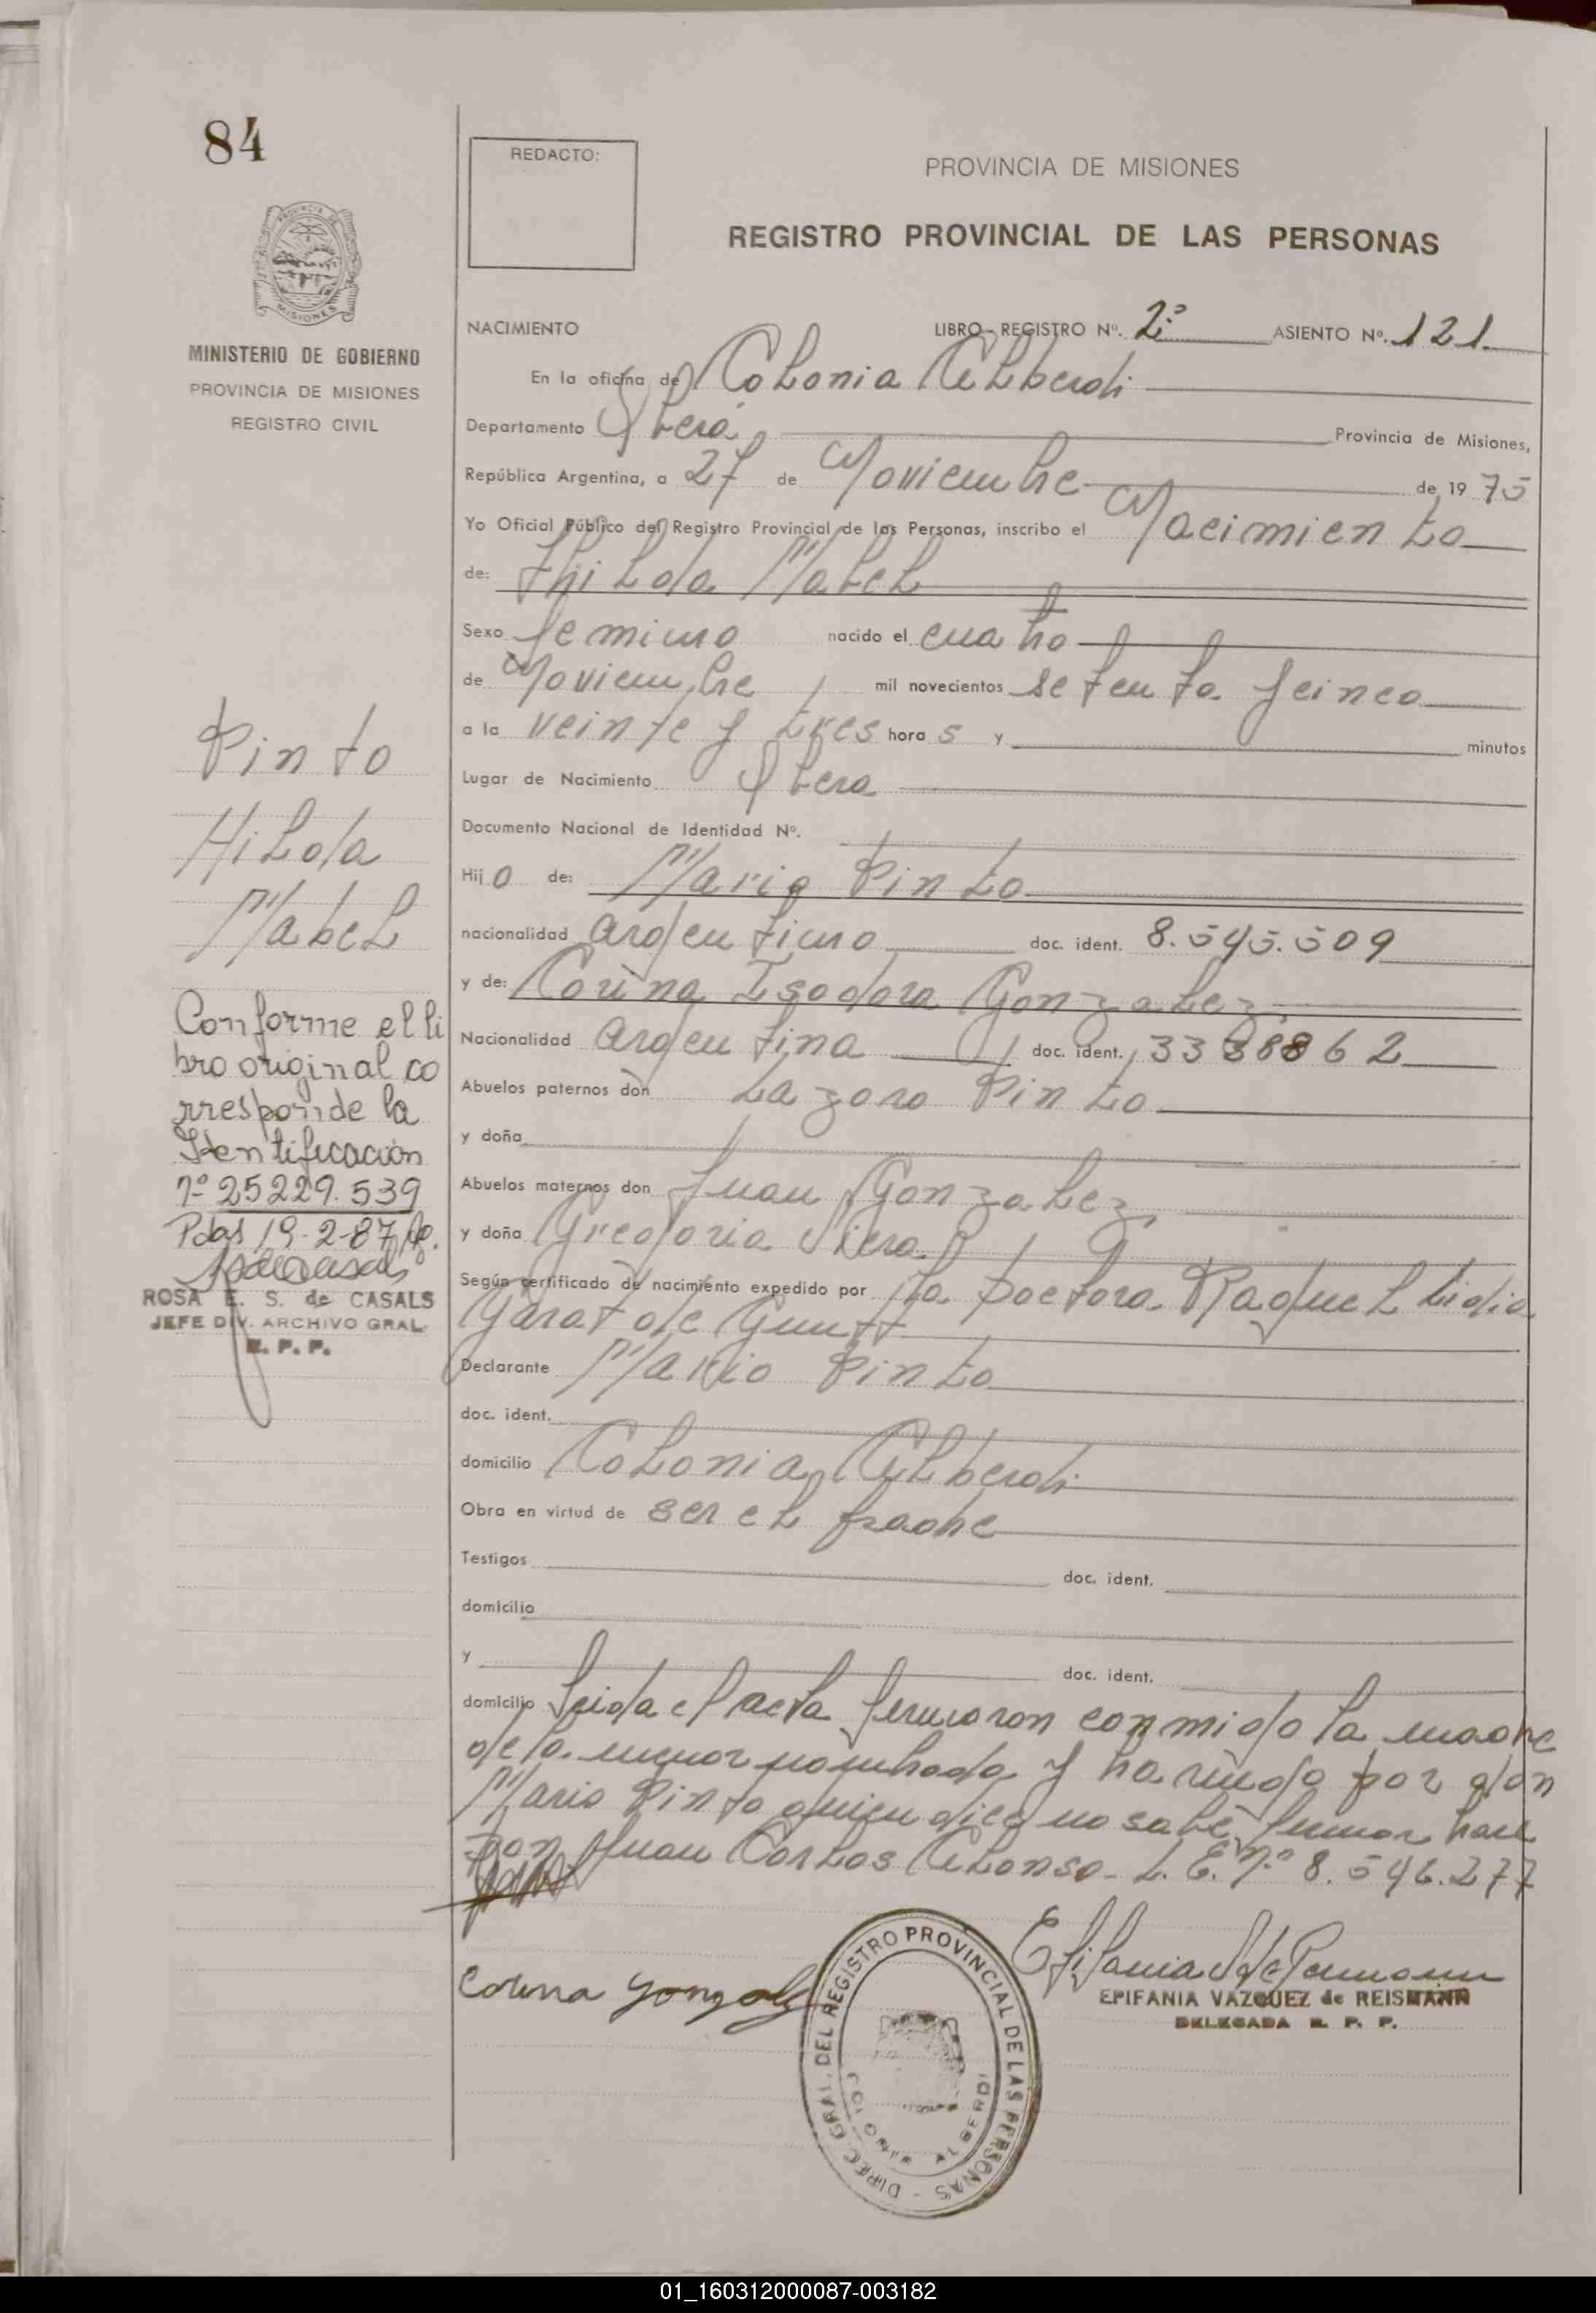 84
REDACTO:
PROVINCIA DE MISIONES
REGISTRO PROVINCIAL DE LAS PERSONAS
PROVINCIA DE
MISIONES
MINISTERIO DE GOBIERNO
PROVINCIA DE MISIONES
REGISTRO CIVIL
NACIMIENTO LIBRO - REGISTRO Nº. 2º ASIENTO Nº. 121.
En la oficina de Colonia Alberdi
Departamento Oberá, Provincia de Misiones,
República Argentina, a 27 de Noviembre de 19 75
Yo Oficial Público del Registro Provincial de las Personas, inscribo el Nacimiento
de: Hilda Mabel
Sexo femino nacido el cuatro
de Noviembre mil novecientos setenta y cinco
a la veinte y tres hora s y minutos
Lugar de Nacimiento Obera
Documento Nacional de Identidad Nº.
Hij o de: Mario Pinto
nacionalidad argentino doc. ident. 8.545.509
y de: Corina Isodora Gonzalez,
Nacionalidad argentina doc. ident. 3338862
Abuelos paternos don Lazaro Pinto
y doña
Abuelos maternos don Juan Gonzalez,
y doña Gregoria
Según certificado de nacimiento expedido por la Doctora Raquel Lidia
Garat de
Declarante Mario Pinto
doc. ident.
domicilio Colonia Alberdi
Obra en virtud de ser el padre
Testigos doc. ident.
domicilio
y doc. ident.
domicilio Leida el acta firmaron conmigo la madre
de la menor nombrada y a ruego por don
Mario Pinto quien dice no sabe firmar hace
don Juan Carlos Alonso - L. E. Nº 8.546.277
Corina Gonzalez
EPIFANIA VAZQUEZ de REISMANN
DELEGADA R. P. P.
DIREC. GRAL. DEL REGISTRO PROVINCIAL DE LAS PERSONAS -
COLONIA ALBERDI
Pinto
Hilda
Mabel
Conforme el li
bro original co
rresponde la
Identificación
nº 25229.539
Pdas 19-2-87
ROSA E. S. de CASALS
JEFE DIV. ARCHIVO GRAL.
R. P. P.
01_160312000087-003182